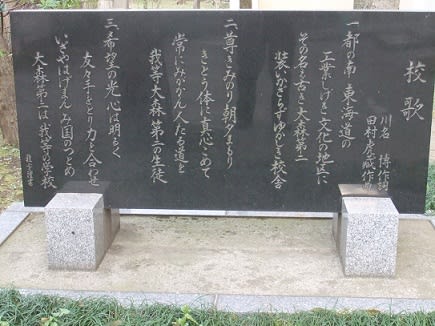 校歌
川名 博作詞
田村虎蔵作曲
一 都の南 東海道の
工業しげき文化の地区に
その名も古き大森第二
装いかざらずゆかしき校舎
二 尊きみのり朝夕まもり
きとう体に真心こめて
常にみがかん人たる道を
我等大森第二の生徒
三 希望の光 心は明るく
友々手をとり力を合わせ
いざやはげまんみ国のつとめ
大森第二は我等の学校